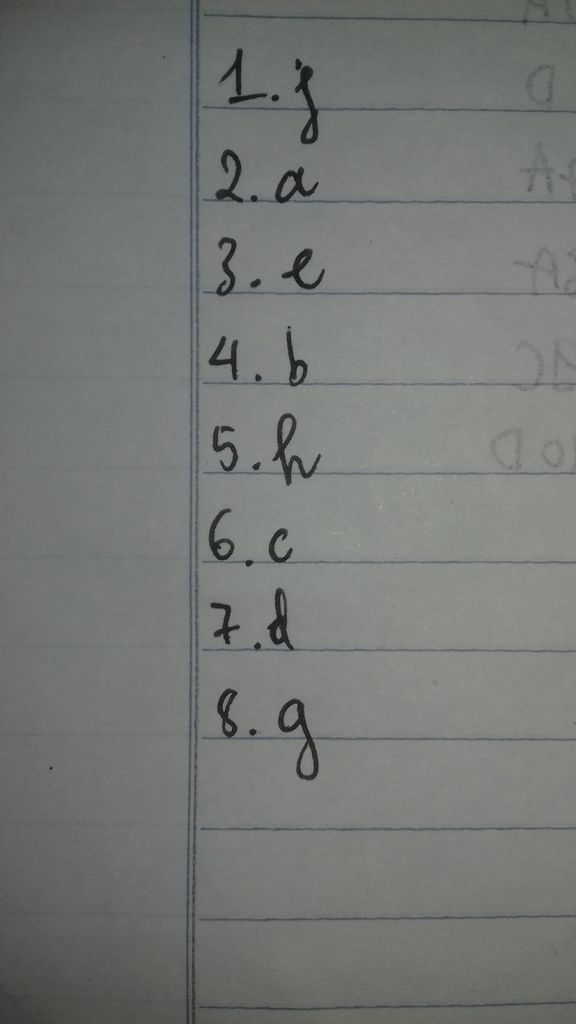 1. j
2. a
3. e
4. b
5. h
6. c
7. d
8. g